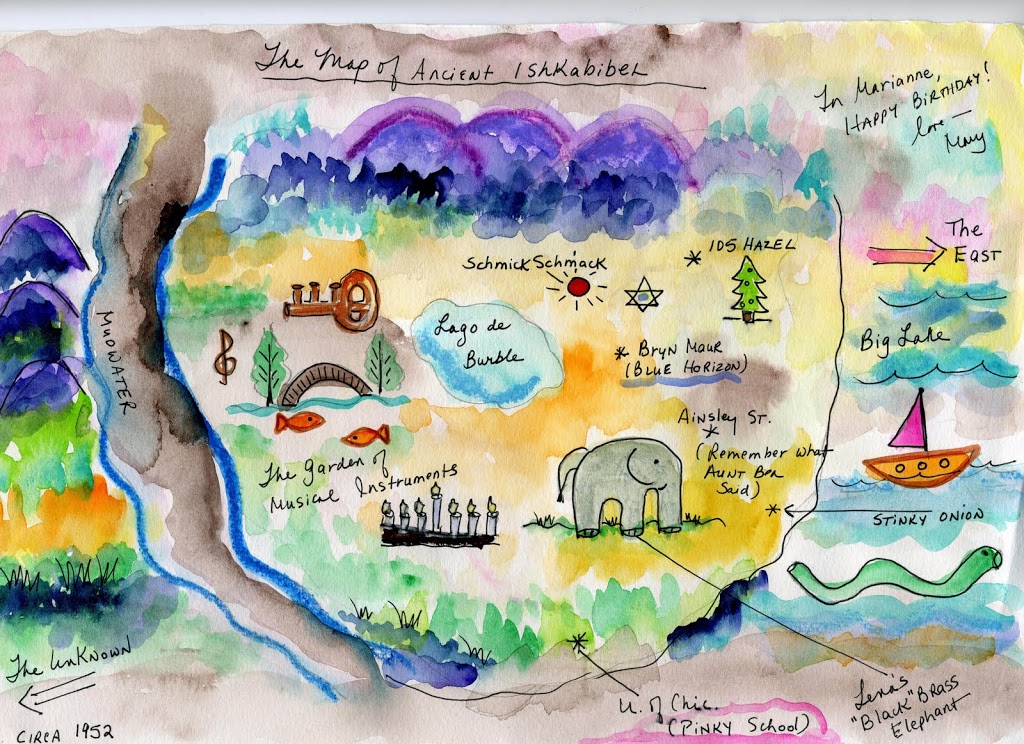 The Map of Ancient Ishkabibel
To Marianne,
HAPPY BIRTHDAY!
love —
Mary
The
EAST
105 HAZEL
SchmickSchmack
Lago de
Burble
Big Lake
MUDWATER
BRYN MAUR
(BLUE HORIZON)
AINSLEY ST.
(Remember what
AUNT BEA
Said)
The Garden of
Musical Instruments
STINKY ONION
The UnKNOWN
U. of Chic.
(PINKY SCHOOL)
Lena's
"Black" BRASS
Elephant
CIRCA 1952